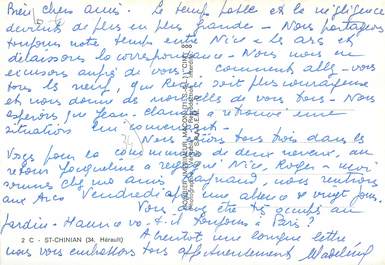 Bien chers amis. Le temps passe et la négligence
devient de plus en plus grande - Nous partageons
toujours notre temps entre Nice et les arcs et
délaissons la correspondance - Nous nous en
excusons auprès de vous - comment allez-vous
tous les neuf, que René soit plus courageux
et nous donne des nouvelles de vous tous - Nous
espérons que Jean-Claude a retrouvé une
situation lui convenant -
Nous étions tous trois dans les
Vosges pour la communion de deux neveux, au
retour Jacqueline a regagné Nice, Roger - moi
sommes chez nos amis, nous rentrons
aux Arcs Vendredi après une absence de vingt jours.
Vous devez être très occupés au
jardin - Maurice va-t-il toujours à Paris ?
2 C - ST-CHINIAN (34. Hérault)
A bientôt une longue lettre
nous vous embrassons tous affectueusement Madeleine